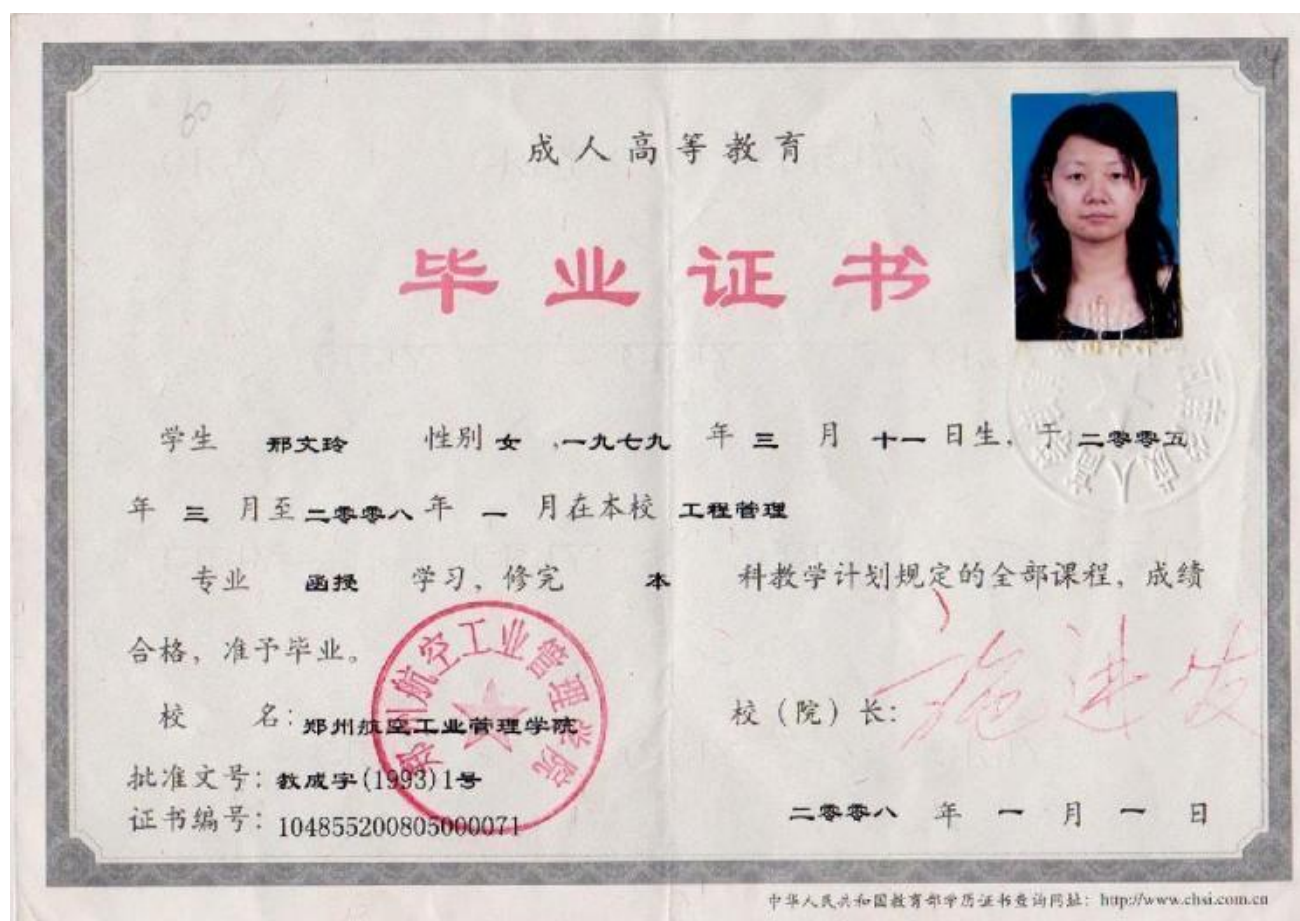 成人高等教育
毕业证书
学生 邢文玲 性别 女 ,一九七九 年 三 月 十一 日生, 于 二零零五
年 三 月至 二零零八 年 一 月在本校 工程管理
专业 函授 学习, 修完 本 科教学计划规定的全部课程, 成绩
合格, 准予毕业。
郑州航空工业管理学院
校 名: 郑州航空工业管理学院
校（院）长: 施进发
批准文号: 教成字(1993)1号
证书编号: 104855200805000071
二零零八 年 一 月 一 日
中华人民共和国教育部学历证书查询网址: http://www.chsi.com.cn